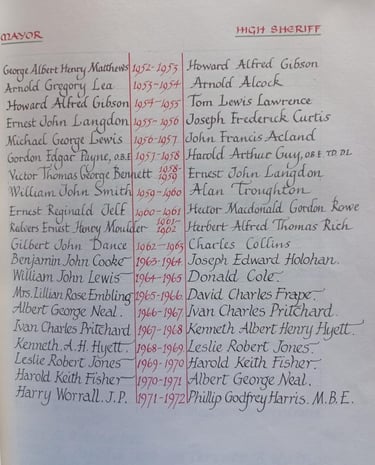 MAYOR HIGH SHERIFF
George Albert Henry Matthews 1952-1953 Howard Alfred Gibson
Arnold Gregory Lea 1953-1954 Arnold Alcock
Howard Alfred Gibson 1954-1955 Tom Lewis Lawrence
Ernest John Langdon 1955-1956 Joseph Frederick Curtis
Michael George Lewis 1956-1957 John Francis Acland
Gordon Edgar Payne, O.B.E. 1957-1958 Harold Arthur Guy, O.B.E. T.D. D.L.
Victor Thomas George Bennett 1958-1959 Ernest John Langdon
William John Smith 1959-1960 Alan Troughton
Ernest Reginald Jelf 1960-1961 Hector Macdonald Gordon Rowe
Ernest Henry Moulder 1961-1962 Herbert Alfred Thomas Rich
Gilbert John Dance 1962-1963 Charles Collins
Benjamin John Cooke 1963-1964 Joseph Edward Holohan.
William John Lewis 1964-1965 Donald Cole.
Mrs. Lillian Rose Embling 1965-1966. David Charles Frape.
Albert George Neal. 1966-1967. Ivan Charles Pritchard.
Ivan Charles Pritchard 1967-1968 Kenneth Albert Henry Hyett.
Kenneth. A. H. Hyett. 1968-1969. Leslie Robert Jones.
Leslie Robert Jones 1969-1970 Harold Keith Fisher.
Harold Keith Fisher 1970-1971 Albert George Neal.
Harry Worrall. J.P. 1971-1972 Phillip Godfrey Harris. M.B.E.